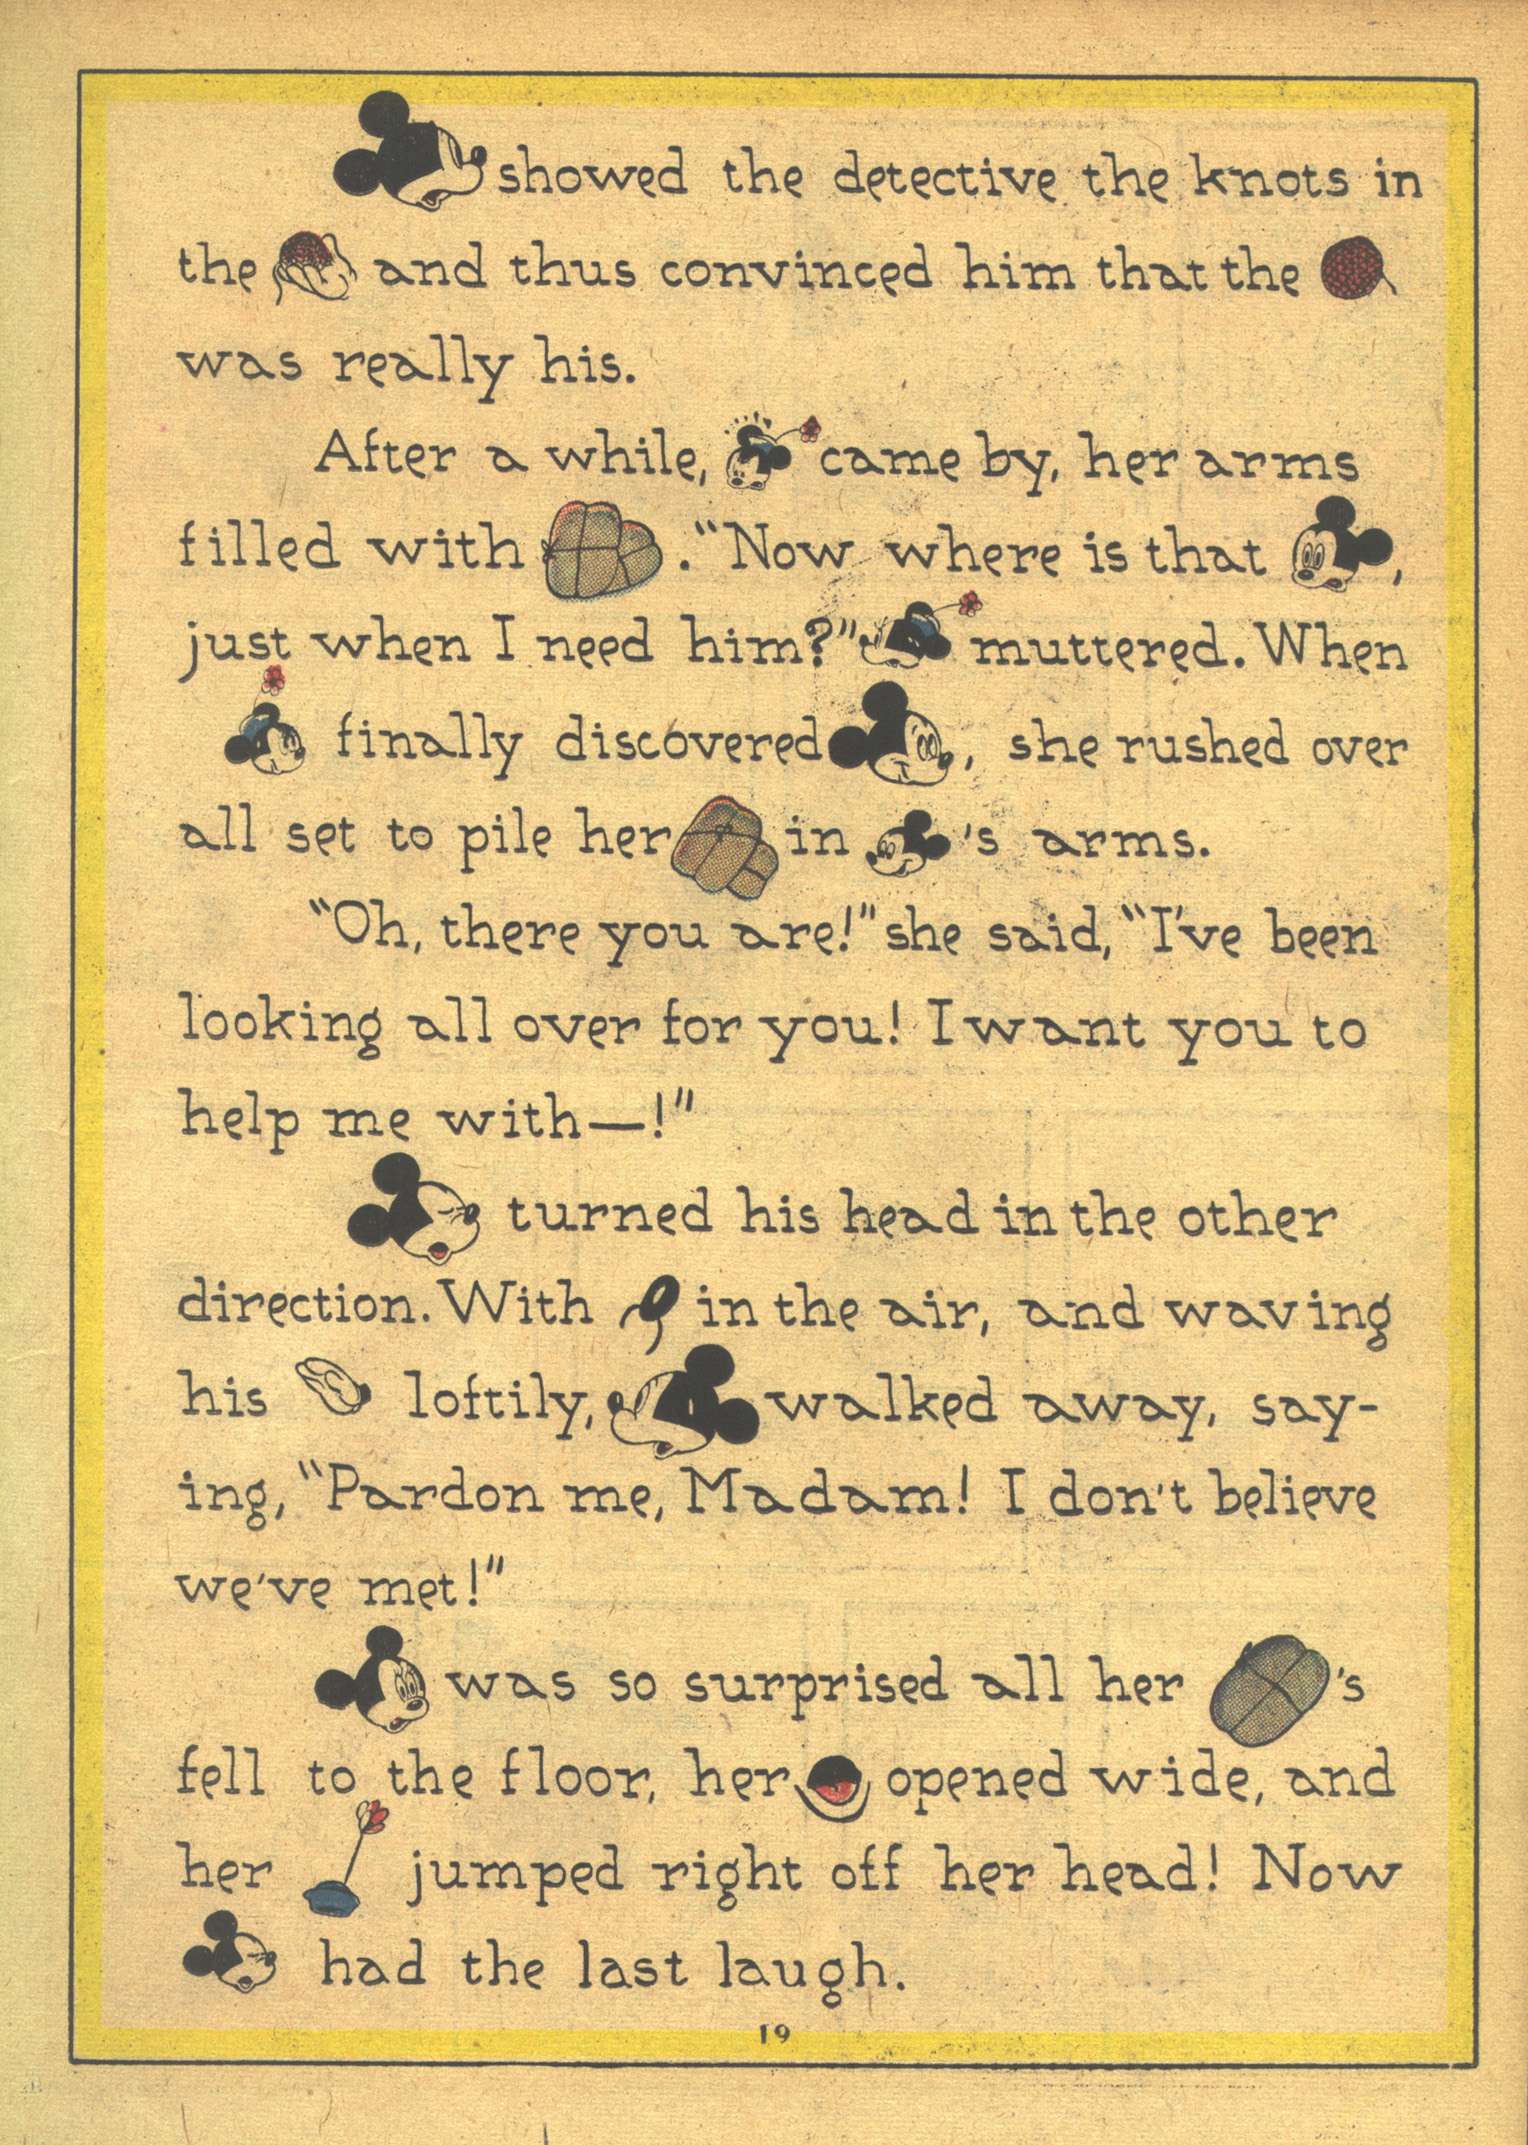 showed the detective the knots in
the and thus convinced him that the
was really his.
After a while, came by, her arms
filled with . "Now where is that ,
just when I need him?" muttered. When
finally discovered , she rushed over
all set to pile her in 's arms.
"Oh, there you are!" she said, "I've been
looking all over for you! I want you to
help me with—!"
turned his head in the other
direction. With in the air, and waving
his loftily, walked away, say-
ing, "Pardon me, Madam! I don't believe
we've met!"
was so surprised all her 's
fell to the floor, her opened wide, and
her jumped right off her head! Now
had the last laugh.
19